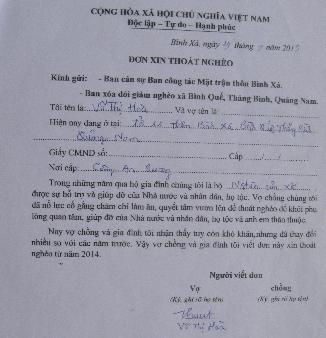 CỘNG HÒA XÃ HỘI CHỦ NGHĨA VIỆT NAM
Độc lập – Tự do – Hạnh phúc
Bình Xá, ngày 19 tháng năm 2015
ĐƠN XIN THOÁT NGHÈO
Kính gửi: - Ban cán sự Ban công tác Mặt trận thôn Bình Xá.
- Ban xóa đói giảm nghèo xã Bình Quế, Thăng Bình, Quảng Nam.
Tôi tên là: Võ Thị Hoà Và vợ tên là
Hiện nay đang ở tại: tổ thôn Bình Xá
Quảng Nam
Giấy CMND số: Cấp
Nơi cấp: Công An
Trong những năm qua hộ gia đình chúng tôi là hộ
được sự hổ trợ và giúp đỡ của Nhà nước và nhân dân, họ tộc. Vợ chồng chúng tôi
đã nổ lực cố gắng chăm chỉ làm ăn, quyết tâm vươn lên để thoát nghèo để khỏi phụ
lòng quan tâm, giúp đỡ của Nhà nước và nhân dân, họ tộc và anh em thân thuộc.
Nay vợ chồng và gia đình tôi nhận thấy tuy còn khó khăn, nhưng đã thay đổi
nhiều so với các năm trước. Vậy vợ chồng và gia đình tôi viết đơn này xin thoát
nghèo từ năm 2014.
Người viết đơn
Vợ chồng
(Ký, ghi rõ họ tên) (Ký, ghi rõ họ tên)
Võ Thị Hoà